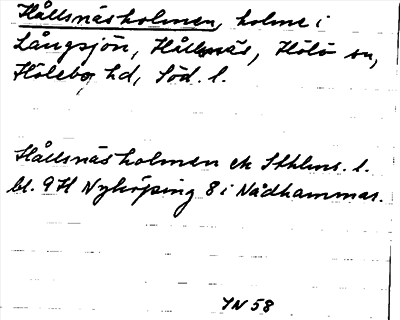 Hållsnäsholmen, holme i
Långsjön, Hållsnäs, Hölö sn,
Hölebo hd, Söd. l.
Hållsnäsholmen ek Sthlms. l.
bl. 9H Nyköping 8 i Nådhammar.
YN 58